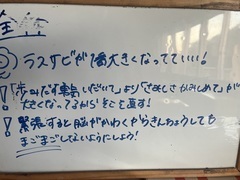 全体
◎ ラスサビが1番大きくなってていい!
! 「歩みだす勇気 いだいて」より「さみしさ かみしめて」が
大きくなってるから そこを直す!
! 緊張すると口がかわくからきんちょうしても
まごまごしてないようにしよう!